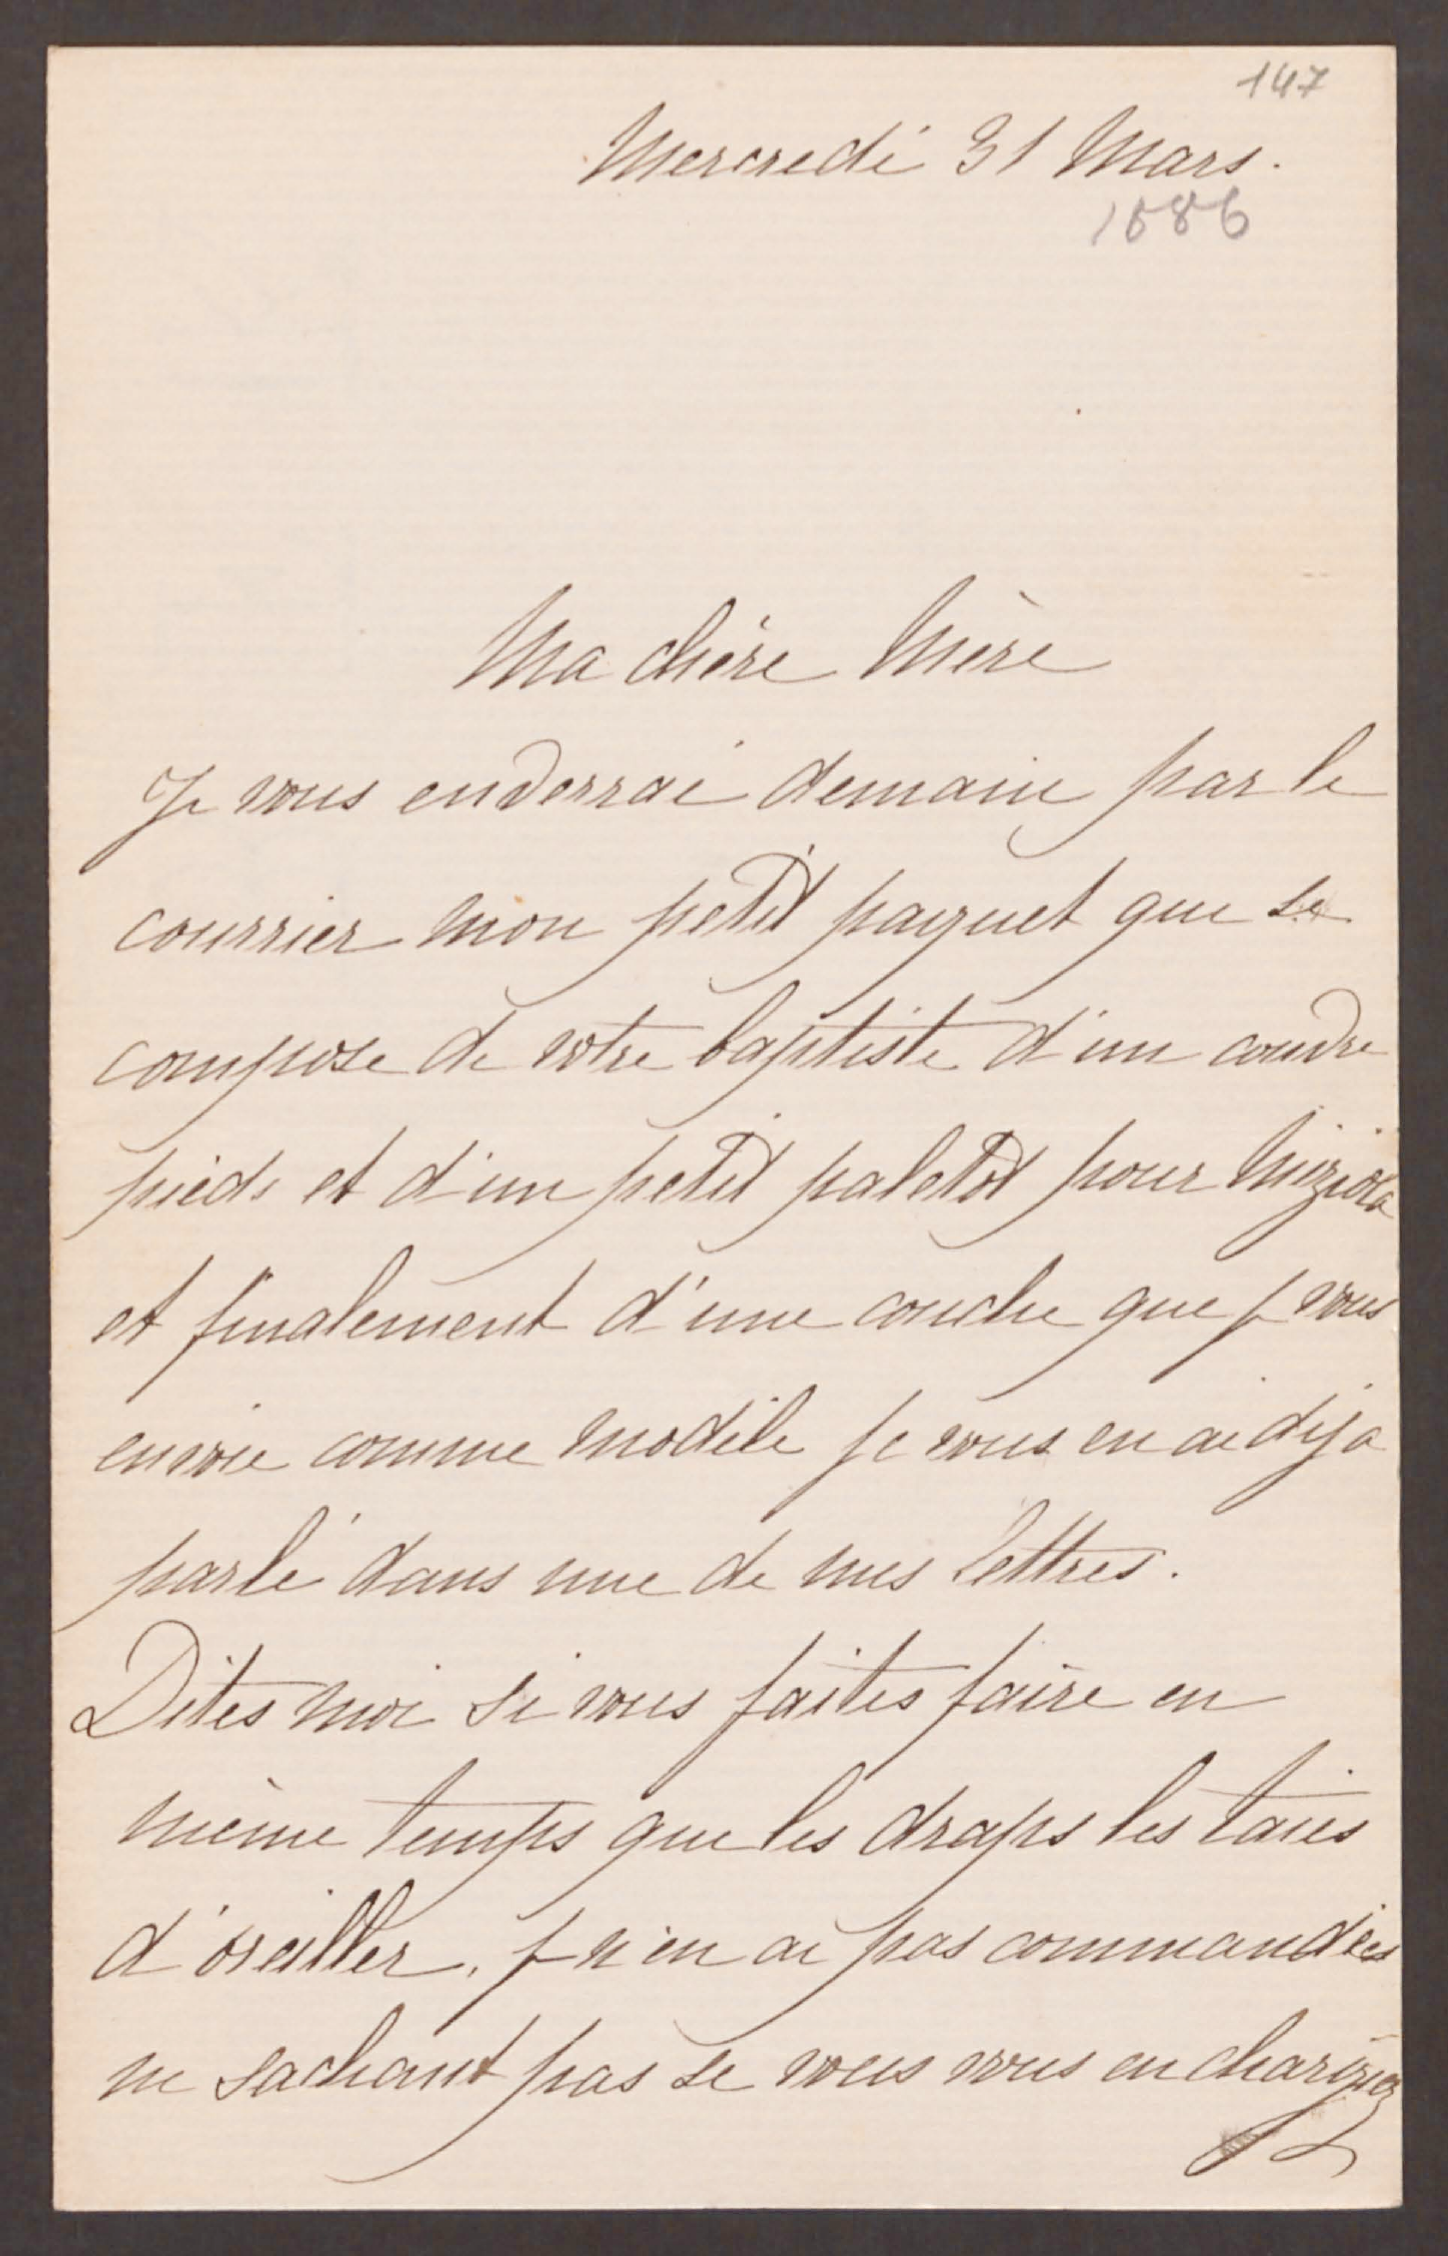 147
Mercredi 31 Mars.
1886
Ma chère Mère
Je vous enverrai demain par le
courrier mon petit paquet qui se
compose de votre baptiste d'un couvre
pieds et d'un petit paletot pour
et finalement d'une couche que je vous
envoie comme modèle je vous en ai déja
parlé dans une de mes lettres.
Dites moi si vous faites faire en
même temps que les draps les taies
d'oreiller, je n'en ai pas commandées
ne sachant pas si vous vous en chargiez